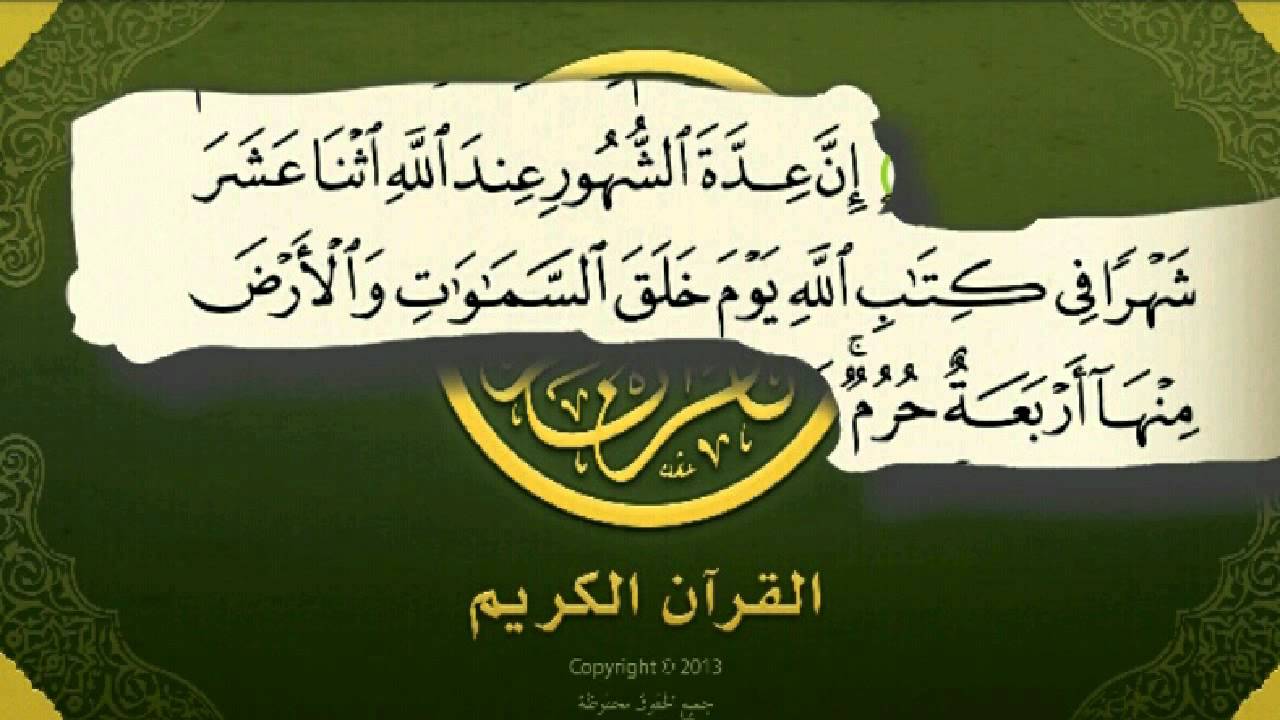 إِنَّ عِدَّةَ ٱلشُّهُورِ عِندَ ٱللَّهِ ٱثْنَا عَشَرَ
شَهْرًا فِي كِتَٰبِ ٱللَّهِ يَوْمَ خَلَقَ ٱلسَّمَٰوَٰتِ وَٱلْأَرْضَ
مِنْهَآ أَرْبَعَةٌ حُرُمٌ ۚ
القرآن الكريم
Copyright © 2013
جميع الحقوق محفوظة